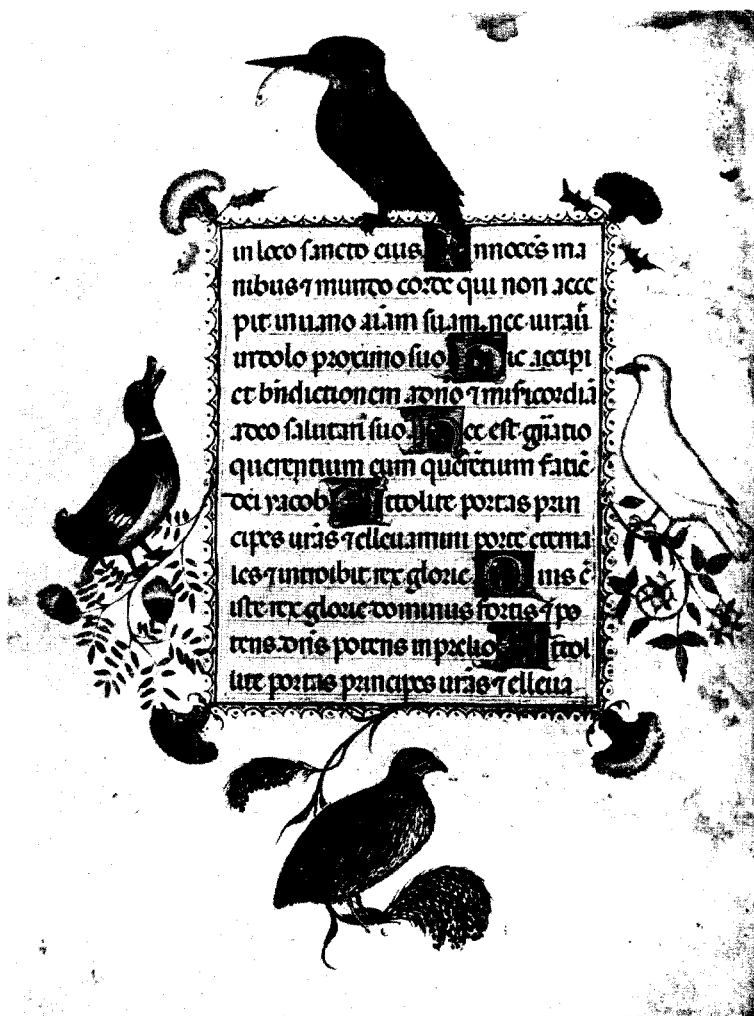 in loco sancto eius Innocēs ma
nibus ⁊ mundo corde qui non acce
pit in uano aīam suam. nec iurauᷓ
in dolo proximo suo Hic accipi
et bn̄dictionem adnō ⁊ misericordiā
adeo salutari suo. Hec est gn̄atio
querentium eum querētium faciē
dei yacob Attolite portas prin
cipes urās ⁊ elleuamini porte eterna
les ⁊ introibit rex glorie Quis ē
iste rex glorie dominus fortis ⁊ po
tens. dn̄s potens in prelio Attol
lite portas principes urās ⁊ elleua